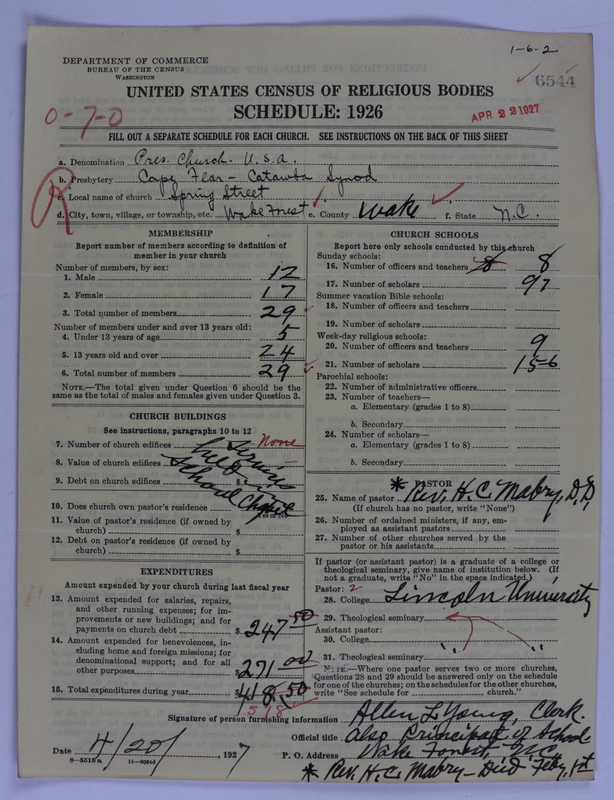 1-6-2
DEPARTMENT OF COMMERCE
BUREAU OF THE CENSUS
WASHINGTON
6544
UNITED STATES CENSUS OF RELIGIOUS BODIES
SCHEDULE: 1926
APR 22 1927
0-7-0
FILL OUT A SEPARATE SCHEDULE FOR EACH CHURCH. SEE INSTRUCTIONS ON THE BACK OF THIS SHEET
a. Denomination Pres. Church. U.S.A.
b. Presbytery Cape Fear - Catawba Synod
R
c. Local name of church Spring Street
d. City, town, village, or township, etc. Wake Forest e. County Wake f. State N.C.
MEMBERSHIP
Report number of members according to definition of
member in your church
Number of members, by sex:
1. Male 12
2. Female 17
3. Total number of members 29
Number of members under and over 13 years old:
4. Under 13 years of age 5
5. 13 years old and over 24
6. Total number of members 29
NOTE.—The total given under Question 6 should be
same as the total of males and females given under Question 3.
CHURCH BUILDINGS
See instructions, paragraphs 10 to 12
7. Number of church edifices None
8. Value of church edifices
9. Debt on church edifices $
Services
held in
School Chapel
10. Does church own pastor's residence
11. Value of pastor's residence (if owned by
church) $
12. Debt on pastor's residence (if owned by
church) $
EXPENDITURES
Amount expended by your church during last fiscal year
13. Amount expended for salaries, repairs,
and other running expenses; for im-
provements or new buildings; and for
payments on church debt $ 247 50
14. Amount expended for benevolences, in-
cluding home and foreign missions; for
denominational support; and for all
other purposes $ 271 00
15. Total expenditures during year $ 418.50
518
CHURCH SCHOOLS
Report here only schools conducted by this church
Sunday schools:
16. Number of officers and teachers 8 8
17. Number of scholars 97
Summer vacation Bible schools:
18. Number of officers and teachers
19. Number of scholars
Week-day religious schools:
20. Number of officers and teachers 9
21. Number of scholars 156
Parochial schools:
22. Number of administrative officers
23. Number of teachers—
a. Elementary (grades 1 to 8)
b. Secondary
24. Number of scholars—
a. Elementary (grades 1 to 8)
b. Secondary
PASTOR
25. Name of pastor * Rev. H. C. Mabry, D.D.
(If church has no pastor, write "None")
26. Number of ordained ministers, if any, em-
ployed as assistant pastors
27. Number of other churches served by the
pastor or his assistants
If pastor (or assistant pastor) is a graduate of a college or
theological seminary, give name of institution below. (If
not a graduate, write "No" in the space indicated.)
Pastor: 2
28. College Lincoln University
29. Theological seminary " "
Assistant pastor:
30. College
31. Theological seminary
NOTE.—Where one pastor serves two or more churches,
Questions 28 and 29 should be answered only on the schedule
for one of the churches; on the schedules for the other churches,
write "See schedule for church."
Signature of person furnishing information Allen L. Young, Clerk.
Official title also Principal of School
Date 4/20/, 1927 P. O. Address Wake Forest, N.C.
8—5518a 11—9084d
* Rev. H. C. Mabry - Died Feby. 1st